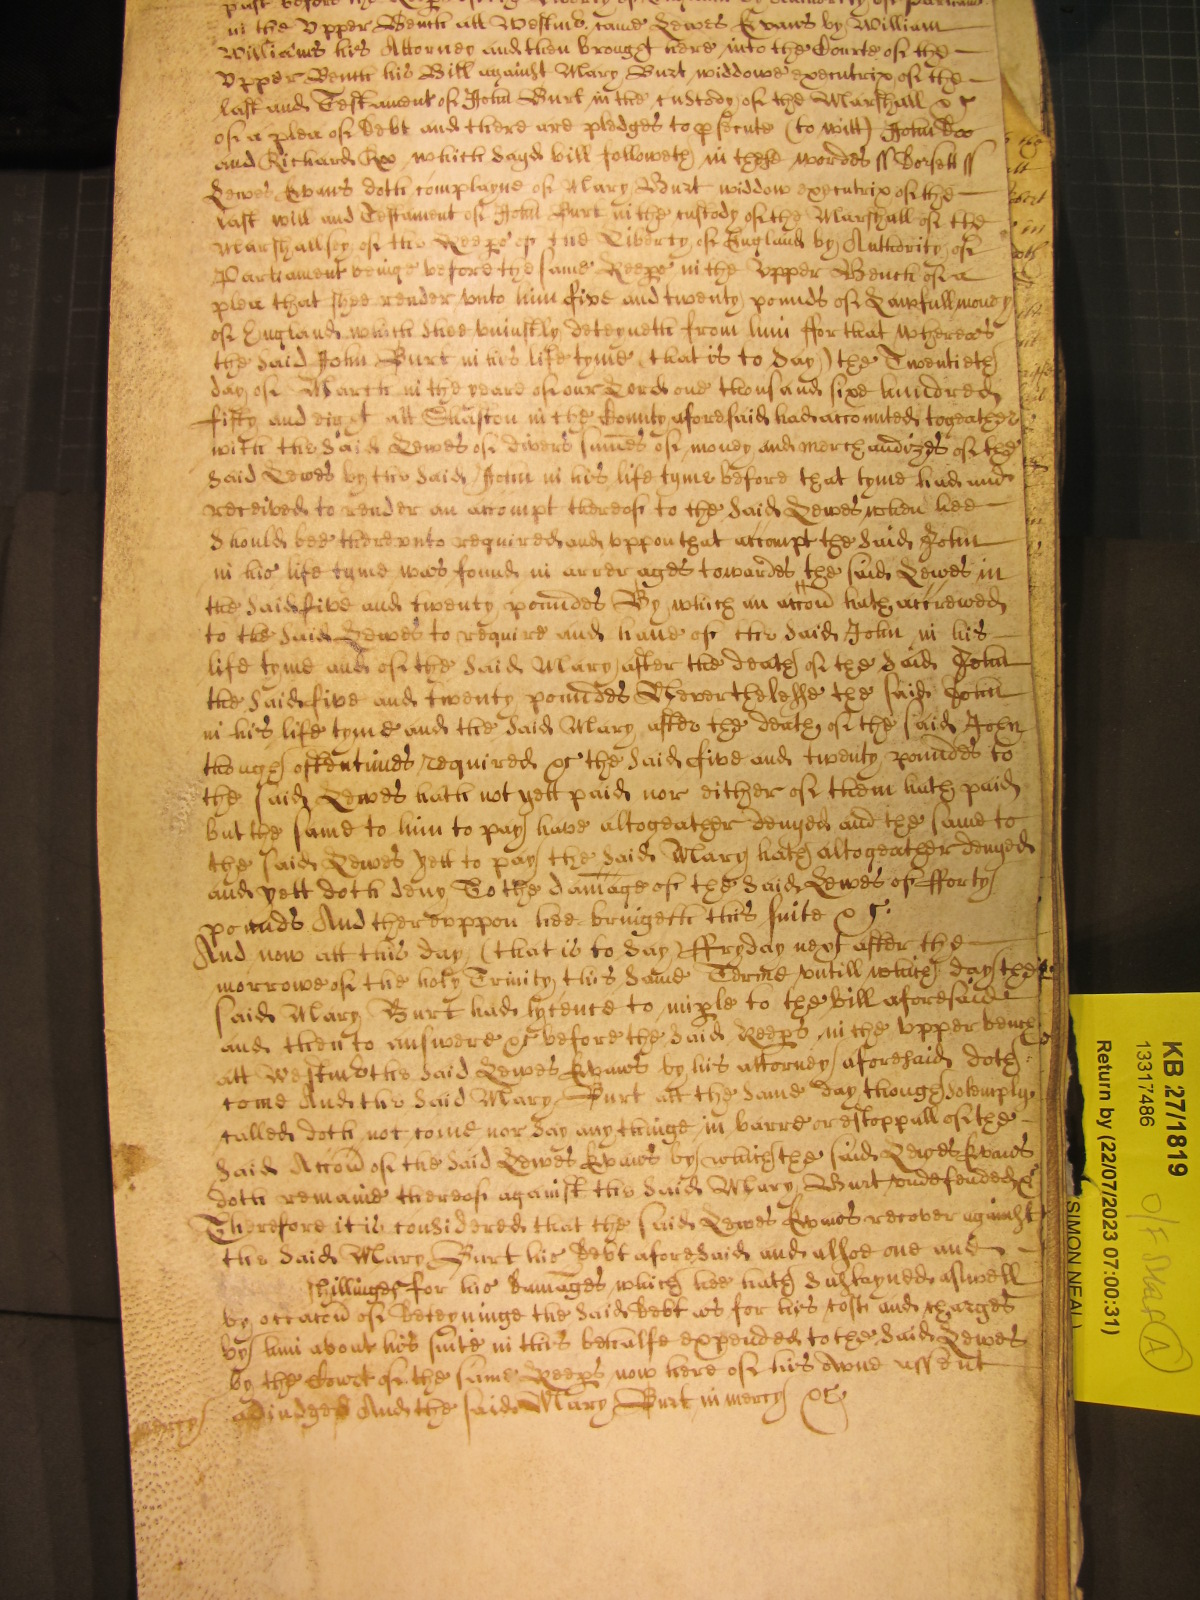 past before the Keeps of the Liberty of England by Authority of Parliamt
in the Upper Bench att Westmr came Lewes Evans by William
Williams his Attorney and then brought here into the Courte of the
Upper Bench his Bill against Mary Burt widdowe executrix of the
last and Testament of John Burt in the custody of the Marshall &c
of a plea of Debt and there are pledges to psecute (to witt) John Doo
and Richard Roo which said bill followeth in these wordes ss Dorsett ss
Lewes Evans doth complayne of Mary Burt widdow executrix of the
last will and Testament of John Burt in the custody of the Marshall of the
Marshallsey of the Keeps of the Liberty of England by Authority of
Parliament beinge before the same Keeps in the Upper Bench of a
plea that shee render unto him five and twenty pounds of Lawfull money
of England which shee uniustly deteyneth from him ffor that whereas
the said John Burt in his life tyme (that is to say) the Twentieth
day of March in the yeare of our Lord one thousand sixe hundred
fifty and eight att Shaston in the County aforesaid had accompted togeather
with the said Lewes of divers summes of money and merchandizes of the
said Lewes by the said John in his life tyme before that tyme had and
received to render an accompt thereof to the said Lewes when hee
should bee thereunto required and uppon that accompt the said John
in his life tyme was found in arrerages towardes the said Lewes in
the said five and twenty poundes By which an accon hath accrewed
to the said Lewes to require and have of the said John in his
life tyme and of the said Mary after the death of the said John
the said five and twenty poundes Neverthelesse the said John
in his life tyme and the said Mary after the death of the said John
though oftentimes required &c the said five and twenty poundes to
the said Lewes hath not yett paid nor either of them hath paid
but the same to him to pay have altogeather denyed and the same to
the said Lewes yett to pay the said Mary hath altogeather denyed
and yett doth deny To the damage of the said Lewes of fforty
pounds And thereuppon hee bringeth this suite &c
And now att this day (that is to say) ffryday next after the
morrowe of the holy Trinity this same Terme untill which day the
said Mary Burt had lycence to imple to the bill aforesaid
and then to answere &c before the said Keeps in the upper bench
att Westmr the said Lewes Evans by his attorney aforesaid doth
come And the said Mary Burt att the same day though solemply
called doth not come nor say any thinge in barre or estoppall of the
said Accon of the said Lewes Evans by which the said Lewes Evans
doth remaine thereof against the said Mary Burt undefended &c
Therefore it is considered that the said Lewes Evans recover against
the said Mary Burt his debt aforesaid and alsoe one and
shillinges for his damages which hee hath sustayned aswell
by occacon of deteyninge the said debt as for his costs and charges
by him about his suite in this behalfe expended to the said Lewes
by the Court of the same Keeps now here of his owne assent
adiudged And the said Mary Burt in mercy &c
mercy
KB 27/1819
13317486
Return by (22/07/2023 07:00:31)
SIMON NEAL
A